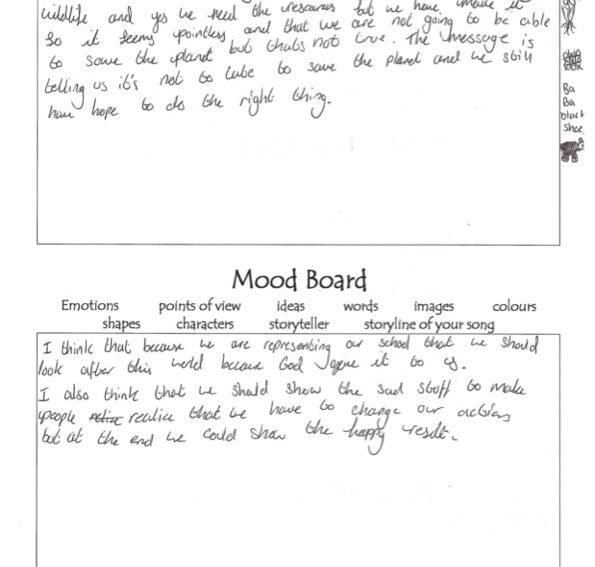 wildlife and yes we need the resources but we have made it
So it seems pointless and that we are not going to be able
to save the planet but thats not true. The message is
telling us it's not to late to save the planet and we still
have hope to do the right thing.
Ba
Ba
black
Shee
Mood Board
Emotions points of view ideas words images colours
shapes characters storyteller storyline of your song
I think that because we are representing our school that we should
look after this world because God gave it to us.
I also think that we should show the sad stuff to make
people realise that we have to change our actions
but at the end we could show the happy result.